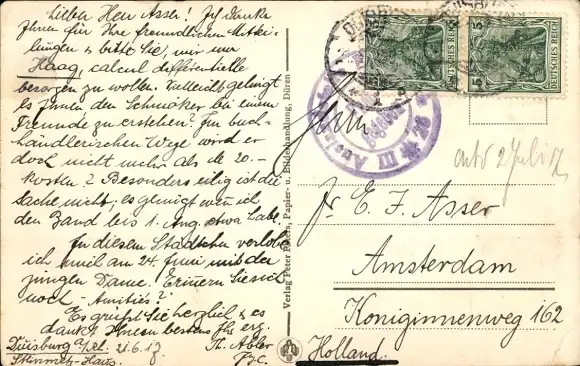 Lieber Herr Asser! Ich danke
Ihnen für Ihre freundlichen Mittei-
lungen & bitte Sie, mir nur
Haag, calcul différentielle
besorgen zu wollen. Vielleicht gelingt
es Ihnen den Schmöker bei einem
Freunde zu erstehen? Im buch-
händlerischen Wege wird er
doch nicht mehr als 20.-
kosten? Besonders eilig ist die
Sache nicht; es genügt wenn ich
den Band bis 1. Aug. etwa habe.
In diesem Städtchen verlobte
ich mich am 24. Juni mit der
jungen Dame. Erinnern Sie sich
noch
Es grüßt Sie herzlich & es
dankt Ihnen bestens Ihr erg.
Duisburg 21.6.17
Steinmetz-Haus.
Verlag Peter Papier- u. Bilderhandlung, Düren
DEUTSCHES REICH
5
DEUTSCHES REICH
5
III
Herrn
antw 2 Juli 17
Dr. E. J. Asser
Amsterdam
Koniginnenweg 162
Holland.